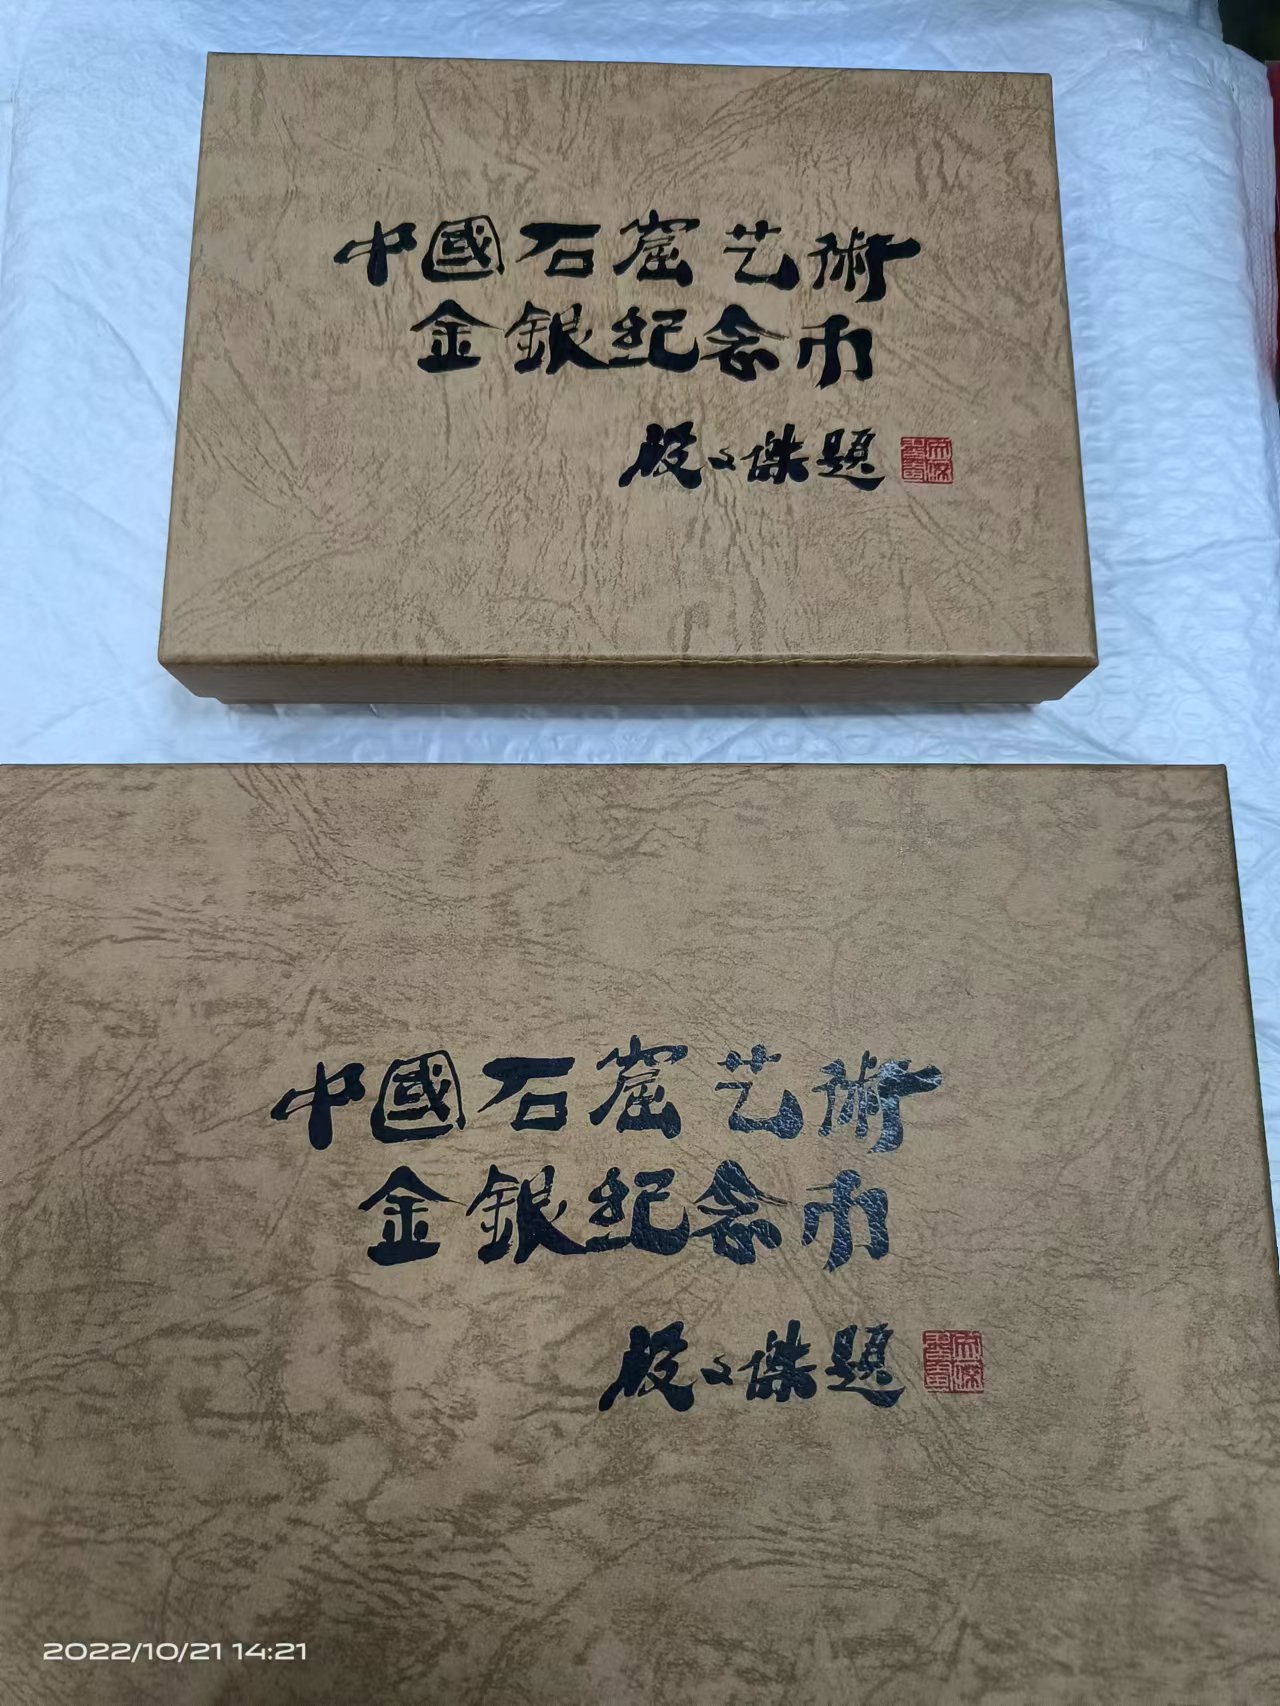 中國石窟艺術
金銀纪念币
段文傑題
中國石窟艺術
金銀纪念币
段文傑題
2022/10/21 14:21